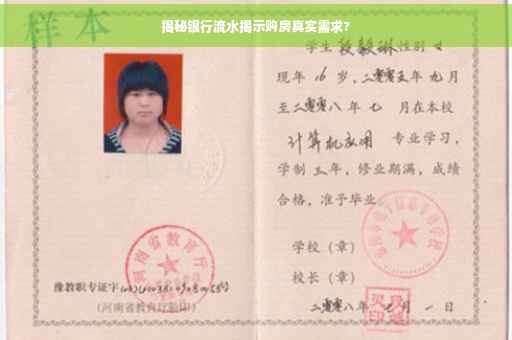 揭秘银行流水揭示购房真实需求?
样本
学生 段毅琳 性别 女
现年 16 岁,二零零五年 九 月
至二零零八年 七 月在本校
计算机应用 专业学习,
学制 三 年,修业期满,成绩
合格,准予毕业
学校(章)
校长(章)
二零零八年 月 一 日
河南省教育厅
豫教职专证字
(河南省教育厅验印)